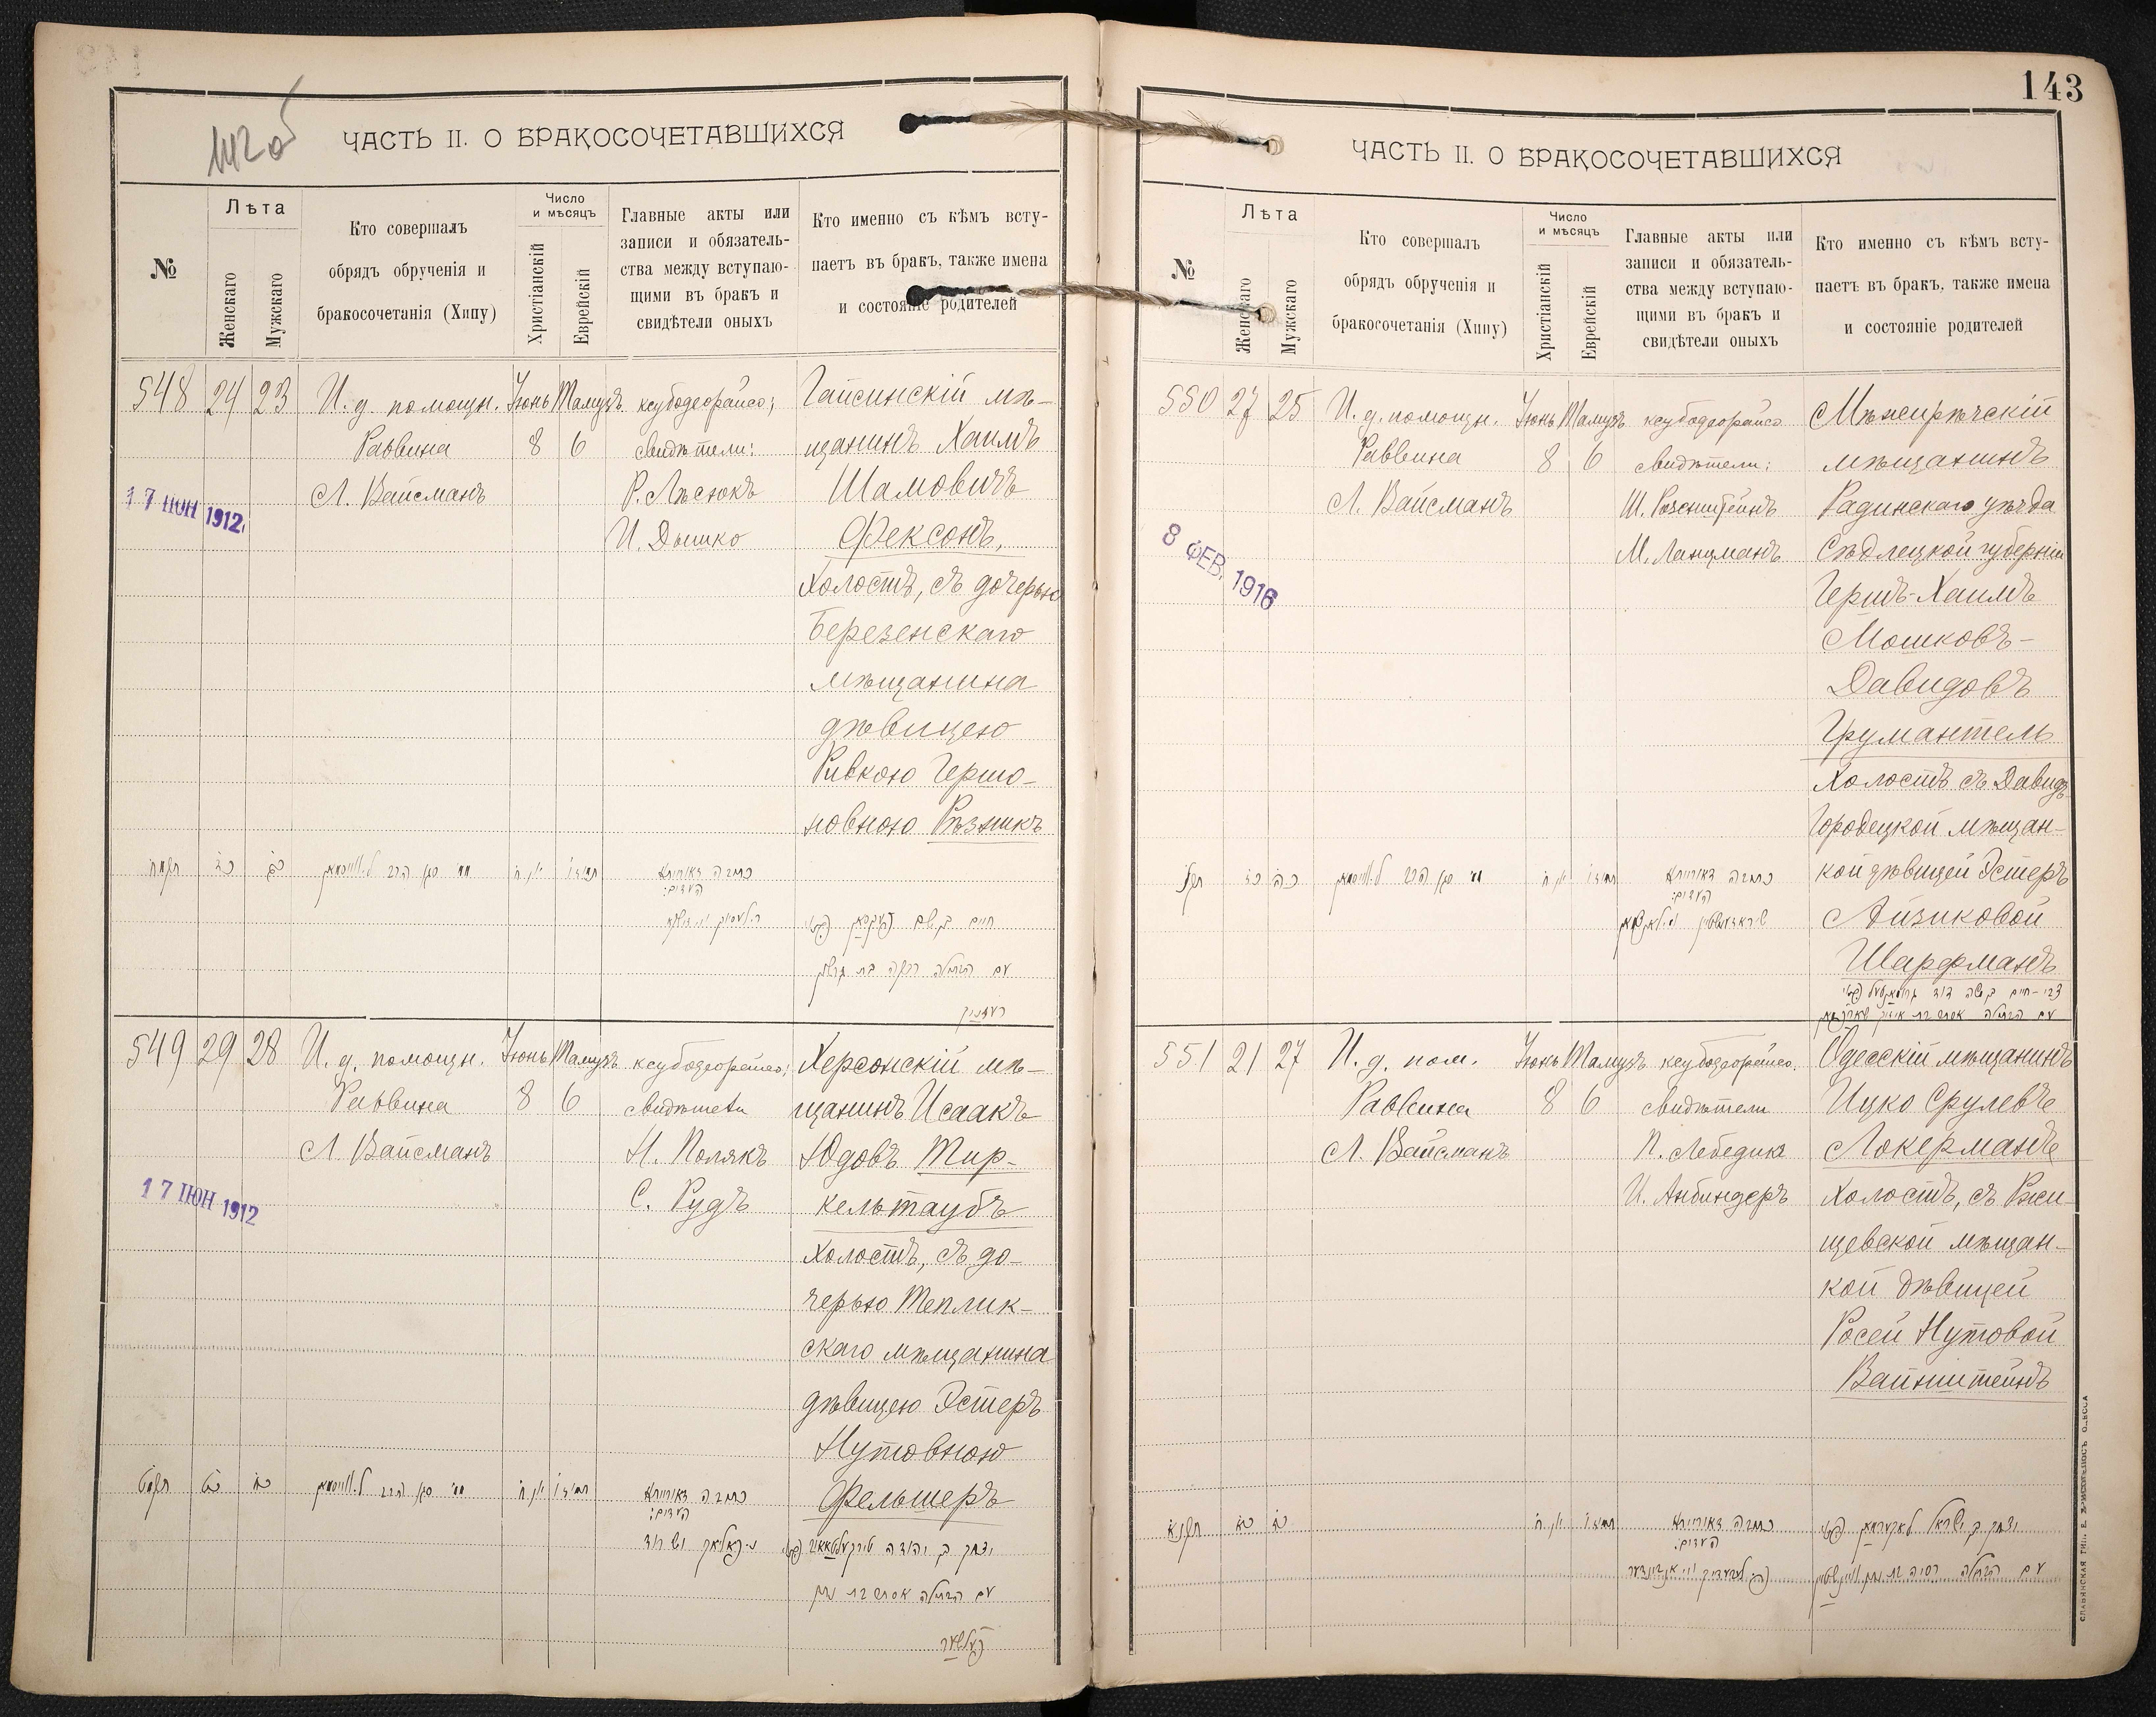 142 об
ЧАСТЬ II. О БРАКОСОЧЕТАВШИХСЯ
№
Лѣта
Женскаго
Мужскаго
Кто совершалъ
обрядъ обрученія и
бракосочетанія (Хипу)
Число
и мѣсяцъ
Христіанскій
Еврейскій
Главные акты или
записи и обязатель-
ства между вступаю-
щими въ бракъ и
свидѣтели оныхъ
Кто именно съ кѣмъ всту-
паетъ въ бракъ, также имена
и состояніе родителей
548 24 23
И. д. помощн.
Раввина
Л. Вайсманъ
17 ІЮН 1912
Іюнь 8
Тамузъ 6
ксубодеорайсо;
свидѣтели:
Р. Лѣсюкъ
И. Дышко
Гайсинскій мѣ-
щанинъ Хаимъ
Шамовичъ
Фексонъ,
холостъ, съ дочерью
Березенскаго
мѣщанина
дѣвицею
Ривкою Гершо-
новною Рѣзникъ
כתובה דאורייתא
העדים:
עם הבתולה רבקה בת גרשון
רעזניק
549 29 28
И. д. помощн.
Раввина
Л. Вайсманъ
17 ІЮН 1912
Іюнь 8
Тамузъ 6
ксубодеорайсо;
свидѣтели
Н. Полякъ
С. Рудъ
Херсонскій мѣ-
щанинъ Исаакъ
Юдовъ Тир-
кельтаубъ
холостъ, съ до-
черью Теплик-
скаго мѣщанина
дѣвицею Эстеръ
Нутовною
Фельшеръ
כתובה דאורייתא
העדים:
עם הבתולה אסתר בת נתן
פעלשער
143
ЧАСТЬ II. О БРАКОСОЧЕТАВШИХСЯ
№
Лѣта
Женскаго
Мужскаго
Кто совершалъ
обрядъ обрученія и
бракосочетанія (Хипу)
Число
и мѣсяцъ
Христіанскій
Еврейскій
Главные акты или
записи и обязатель-
ства между вступаю-
щими въ бракъ и
свидѣтели оныхъ
Кто именно съ кѣмъ всту-
паетъ въ бракъ, также имена
и состояніе родителей
550 27 25
И. д. помощн.
Раввина
Л. Вайсманъ
8 ФЕВ. 1916
Іюнь 8
Тамузъ 6
ксубодеорайсо
свидѣтели:
М. Ланцманъ
Мѣжирѣчскій
мѣщанинъ
Радинскаго уѣзда
Сѣдлецкой губерніи
Гершъ-Хаимъ
Мошковъ-
Давидовъ
Грумантель
холостъ съ Давидъ-
Городецкой мѣщан-
кой дѣвицей Эстеръ
Айзиковой
Шарфманъ
כתובה דאורייתא
העדים:
551 21 27
И. д. пом.
Раввина
Л. Вайсманъ
Іюнь 8
Тамузъ 6
ксубодеорайсо.
свидѣтели
П. Лебедик
И. Анбиндеръ
Одесскій мѣщанинъ
Ицко Срулевъ
Локерманъ
холостъ, съ Ржи-
щевской мѣщан-
кой дѣвицей
Росей Нутовой
Вайнштейнъ
כתובה דאורייתא
העדים:
СЛАВЯНСКАЯ ТИП. Е. ХРИСОГЕЛОСЪ ОДЕССА